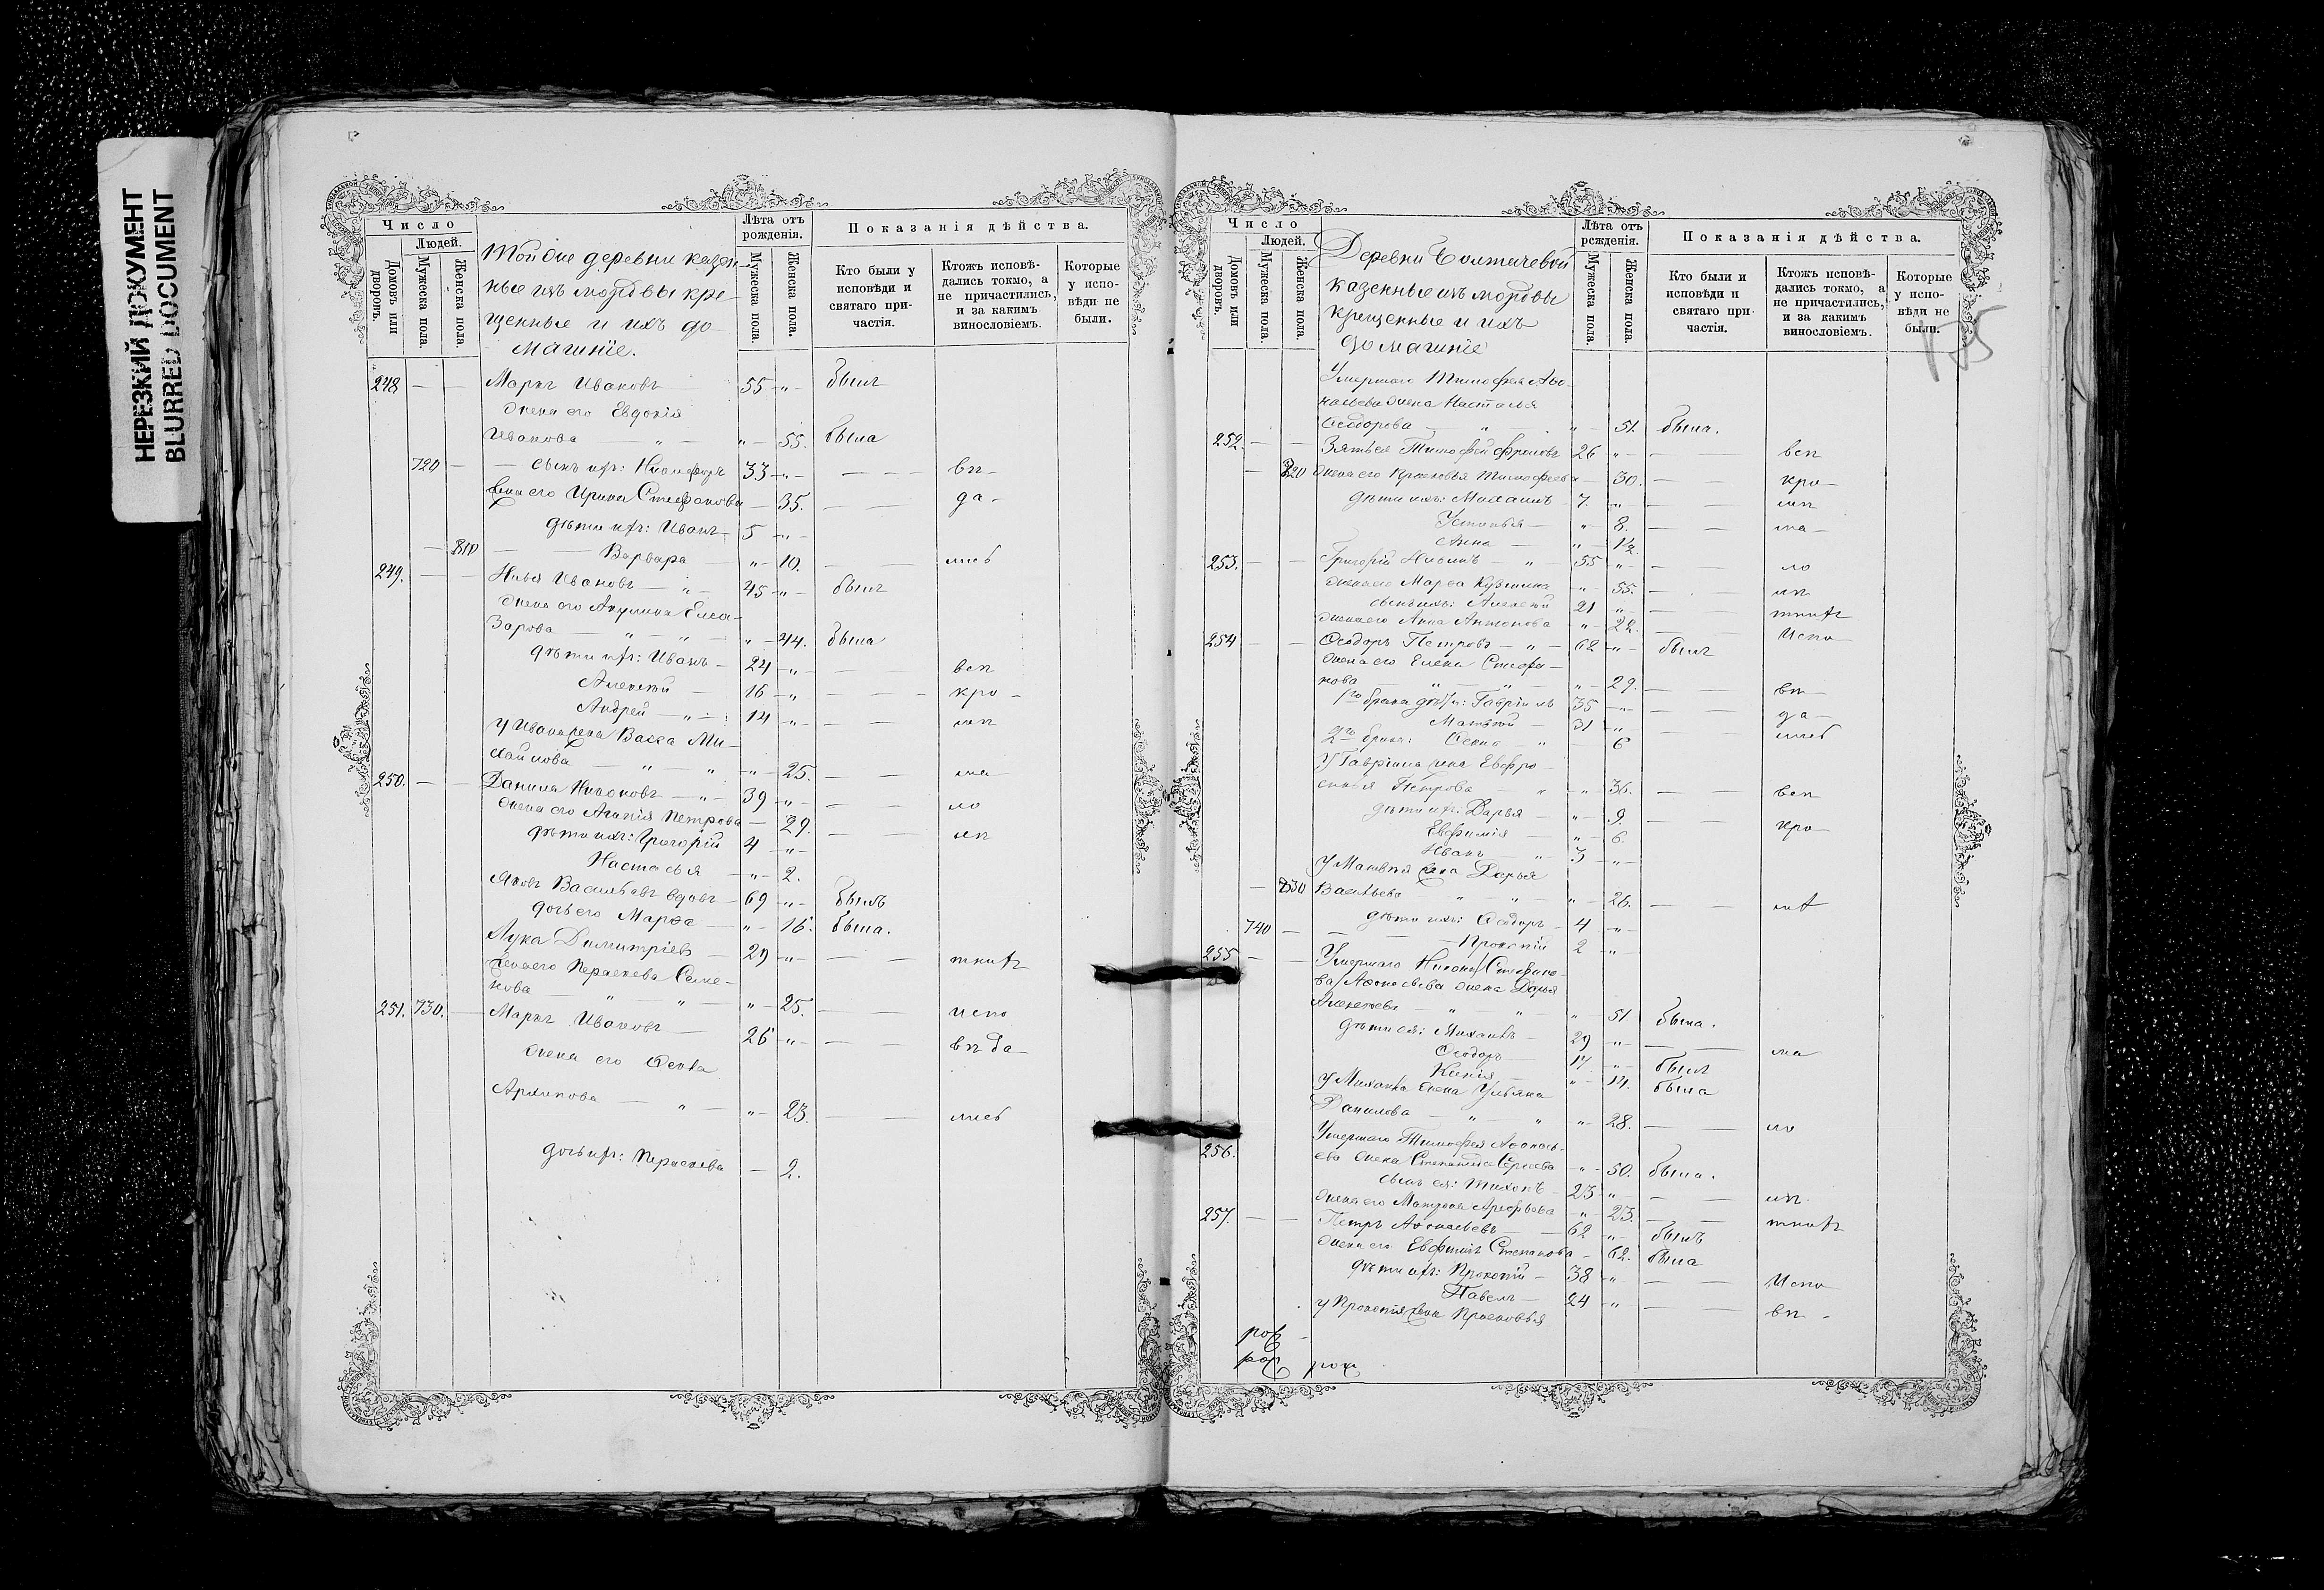 НЕРЕЗКИЙ ДОКУМЕНТ
BLURRED DOCUMENT
Число
Людей.
Домовъ или дворовъ.
Мужеска пола.
Женска пола.
Тойже деревни казен-
ные изъ мордвы кре-
щенные и ихъ до-
машніе.
Лѣта отъ рожденія.
Мужеска пола.
Женска пола.
Показанія дѣйства.
Кто были у исповѣди и святаго при-частія.
Ктожъ исповѣ-дались токмо, а не причастились, и за какимъ винословіемъ.
Которые у испо-вѣди не были.
248 — — Маркъ Ивановъ 55 -„- былъ
жена его Евдокія
Иванова — „ — „ - 55. была
720 — — сынъ ихъ: Никифоръ 33 -„- — — вп-
жена его Ирина Стефанова — 35. — — да-
дѣти ихъ: Иванъ - 5 -„-
— 810 — — Варвара „ - 10. —
249. — — Илья Ивановъ — „ - 45 -„- былъ
жена его Акулина Елеа-
зарова — „ — „ — „ - 44. была
дѣти ихъ: Иванъ - 24 -„- — всп
Алексѣй — 16 -„ — — кро-
Андрей — „ - 14 -„ — —
у Ивана жена Васса Ми-
хайлова — „ „ -„- 25. — — ма-
250. — — Данила Никоновъ — „ - 39 -„- — — ло
жена его Агапія Петрова — 29. — —
дѣти ихъ: Григорій 4 -„-
Настасья -„- 2.
Яковъ Васильевъ вдовъ - 69 -„- былъ
дочь его Марѳа — „ - 16. была.
Лука Димитріевъ — 29 -„- — —
жена его Пераскева Семе-
нова — „ „ - „ - 25. — — испо
251. 730. — Маркъ Ивановъ — 26 „ - — — вп да-
жена его Ѳекла
Архипова — „ — „ - 23. — —
дочь ихъ: Пераскева — 2.
Число
Людей.
Домовъ или дворовъ.
Мужеска пола.
Женска пола.
казенные изъ мордвы
крещенные и ихъ
домашніе
Лѣта отъ рожденія.
Мужеска пола.
Женска пола.
Показанія дѣйства.
Кто были и исповѣди и святаго при-частія.
Ктожъ исповѣ-дались токмо, а не причастились, и за какимъ винословіемъ.
Которые у испо-вѣди не были.
Умершаго Тимофея Аѳо-
насьева жена Настасья
Ѳеодорова — „ „ - 51. была.
252. — — Зятья Тимофей Фроловъ 26 „ - всп
820 жена его Прасковья Тимофеева — 30. — — кро-
дѣти ихъ: Михаилъ - 7. „ - — —
Устинья — „ - 8. — — ма-
Анна — „ - 1½.
253. — — Григорій „ - 55 „ - — ло
жена его Марѳа Кузмина „ - 55. —
сынъ ихъ: Алексѣй 21 „ - — —
жена его Анна Антонова „ - 22. — — испо
254 — — Ѳеодоръ Петровъ — „ - 62 -„- былъ
жена его Елена Стефа-
нова — „ — „ „ - 29. — — вп-
1го брака дѣти: Гавріилъ 35 -„- — — да-
Матвѣй — 31 „ — —
2го брака: „ - 6
У Гавріила жена Евфро-
синія Петрова — „ „ - 36. — — всп
дѣти ихъ: Дарья — „ - 9. — кро-
Евфимія — „ - 6.
Иванъ — „ - 3 -„-
У Матвѣя жена Дарья
— 830 Васильева — „ „ - 26. — —
740 — дѣти ихъ: Ѳеодоръ - 4 -„-
— — Прокопій 2 „ -
255 — — Умершаго Никона Стефано-
ва Аѳонасьева жена Дарья
Алексѣева — „ „ „ - 51. была.
дѣти ея: Михаилъ - 29 -„- — — ма
Ѳеодоръ — 17 -„- былъ
Ксенія — „ - 14. была
У Михаила жена Ульяна
Данилова — „ „ „ - 28. — — ло
Умершаго Тимофея Аѳонась-
256. ева жена Степанида Сергѣева - „ - 50. была.
сынъ ея: Тихонъ - 23 -„- —
жена его Матрона Арефьева - „ - 23. — —
257. — — Петръ Аѳонасьевъ — 62 „ - былъ
жена его Евфимія Степанова - 62. была
дѣти ихъ: Прокопій - 38 -„ — — испо
Павелъ — 24 -„ — — вп -
у Прокопія жена Прасковья